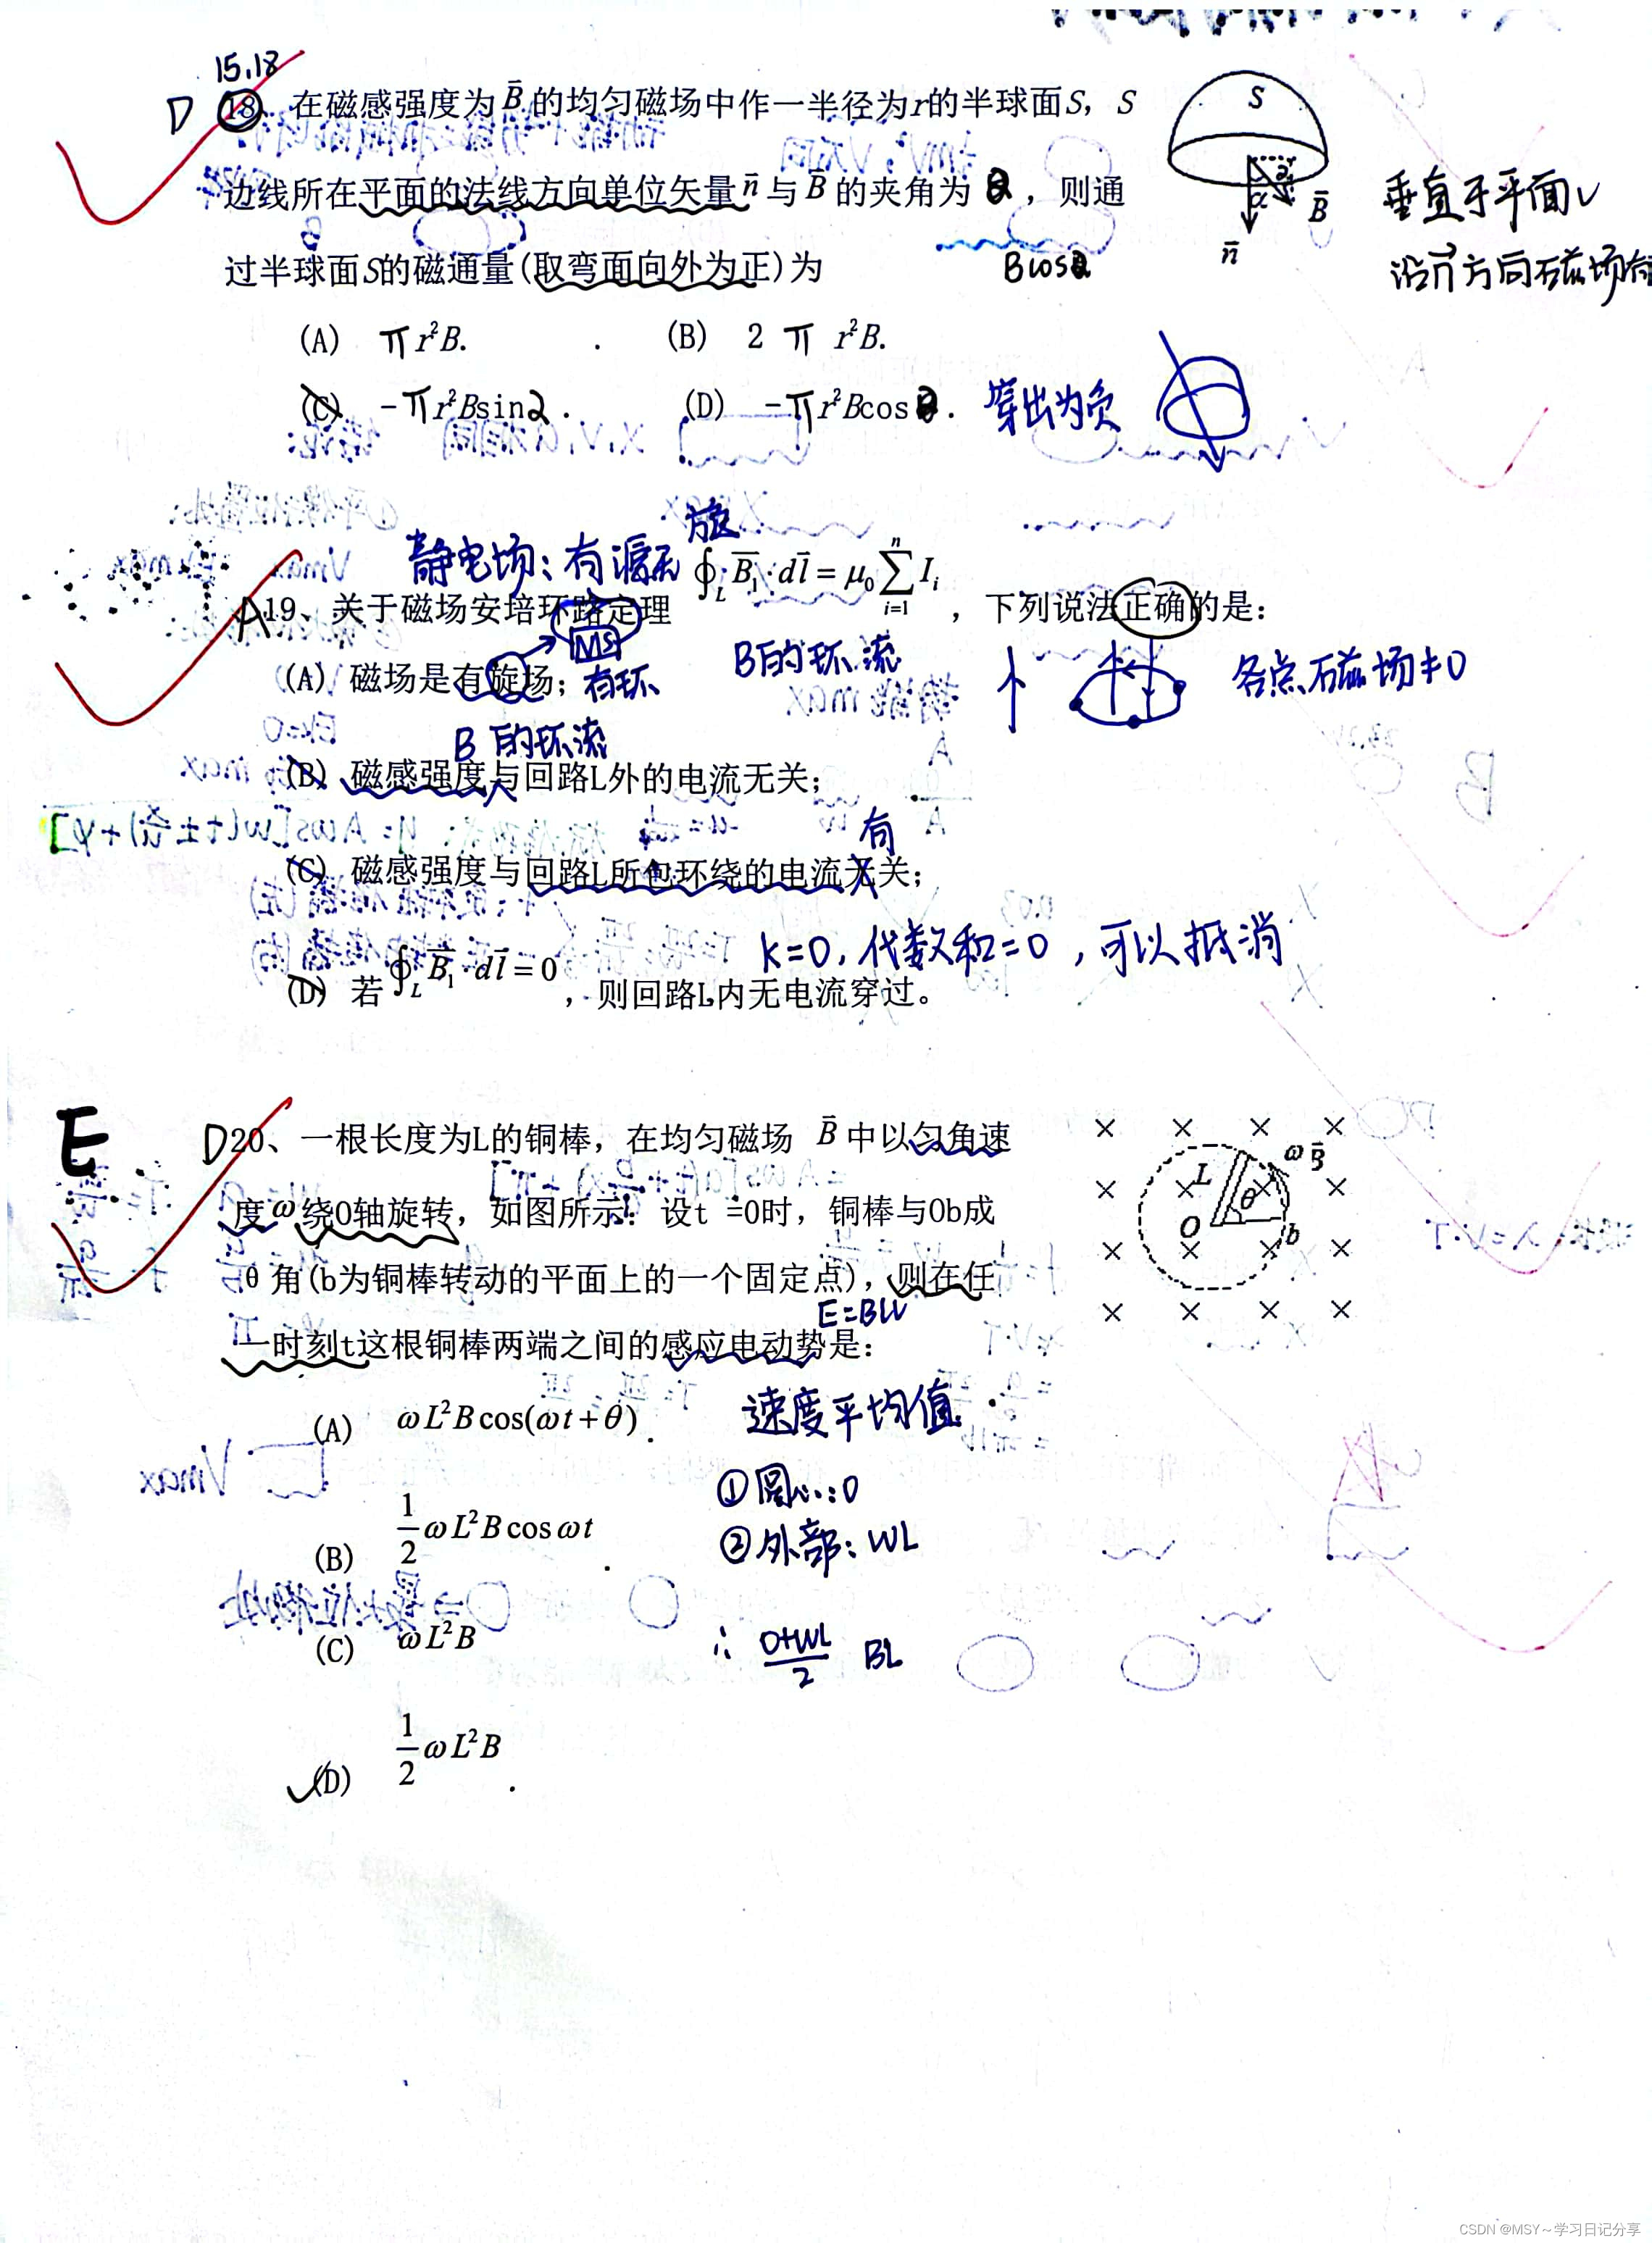 15.18
D 18、在磁感强度为B的均匀磁场中作一半径为r的半球面S，S
边线所在平面的法线方向单位矢量n与B的夹角为α，则通
过半球面S的磁通量(取弯面向外为正)为
Bcosα
S
α
B
n
垂直于平面
沿n方向磁场
(A) πr²B.
(B) 2πr²B.
(C) -πr²Bsinα.
(D) -πr²Bcosα.
穿出为负
静电场：有源无旋
A 19、关于磁场安培环路定理 ∮_L B₁·dl = μ₀∑_{i=1}^{n} I_i ，下列说法正确的是：
(A) 磁场是有旋场；
有环
B的环流
各点磁场≠0
B的环流
(B) 磁感强度与回路L外的电流无关；
有
(C) 磁感强度与回路L所包环绕的电流无关；
k=0，代数和=0，可以抵消
(D) 若∮_L B₁·dl=0，则回路L内无电流穿过。
E
D 20、一根长度为L的铜棒，在均匀磁场 B 中以匀角速
度ω绕O轴旋转，如图所示．设t =0时，铜棒与Ob成
θ角(b为铜棒转动的平面上的一个固定点)，则在任
E=BLV
一时刻t这根铜棒两端之间的感应电动势是：
ω B
L
θ
O
b
(A) ωL²Bcos(ωt+θ).
速度平均值
①圆心：0
(B) 1/2 ωL²Bcosωt.
②外部：WL
(C) ωL²B
∴ (0+WL)/2 BL
(D) 1/2 ωL²B.
CSDN @MSY～学习日记分享